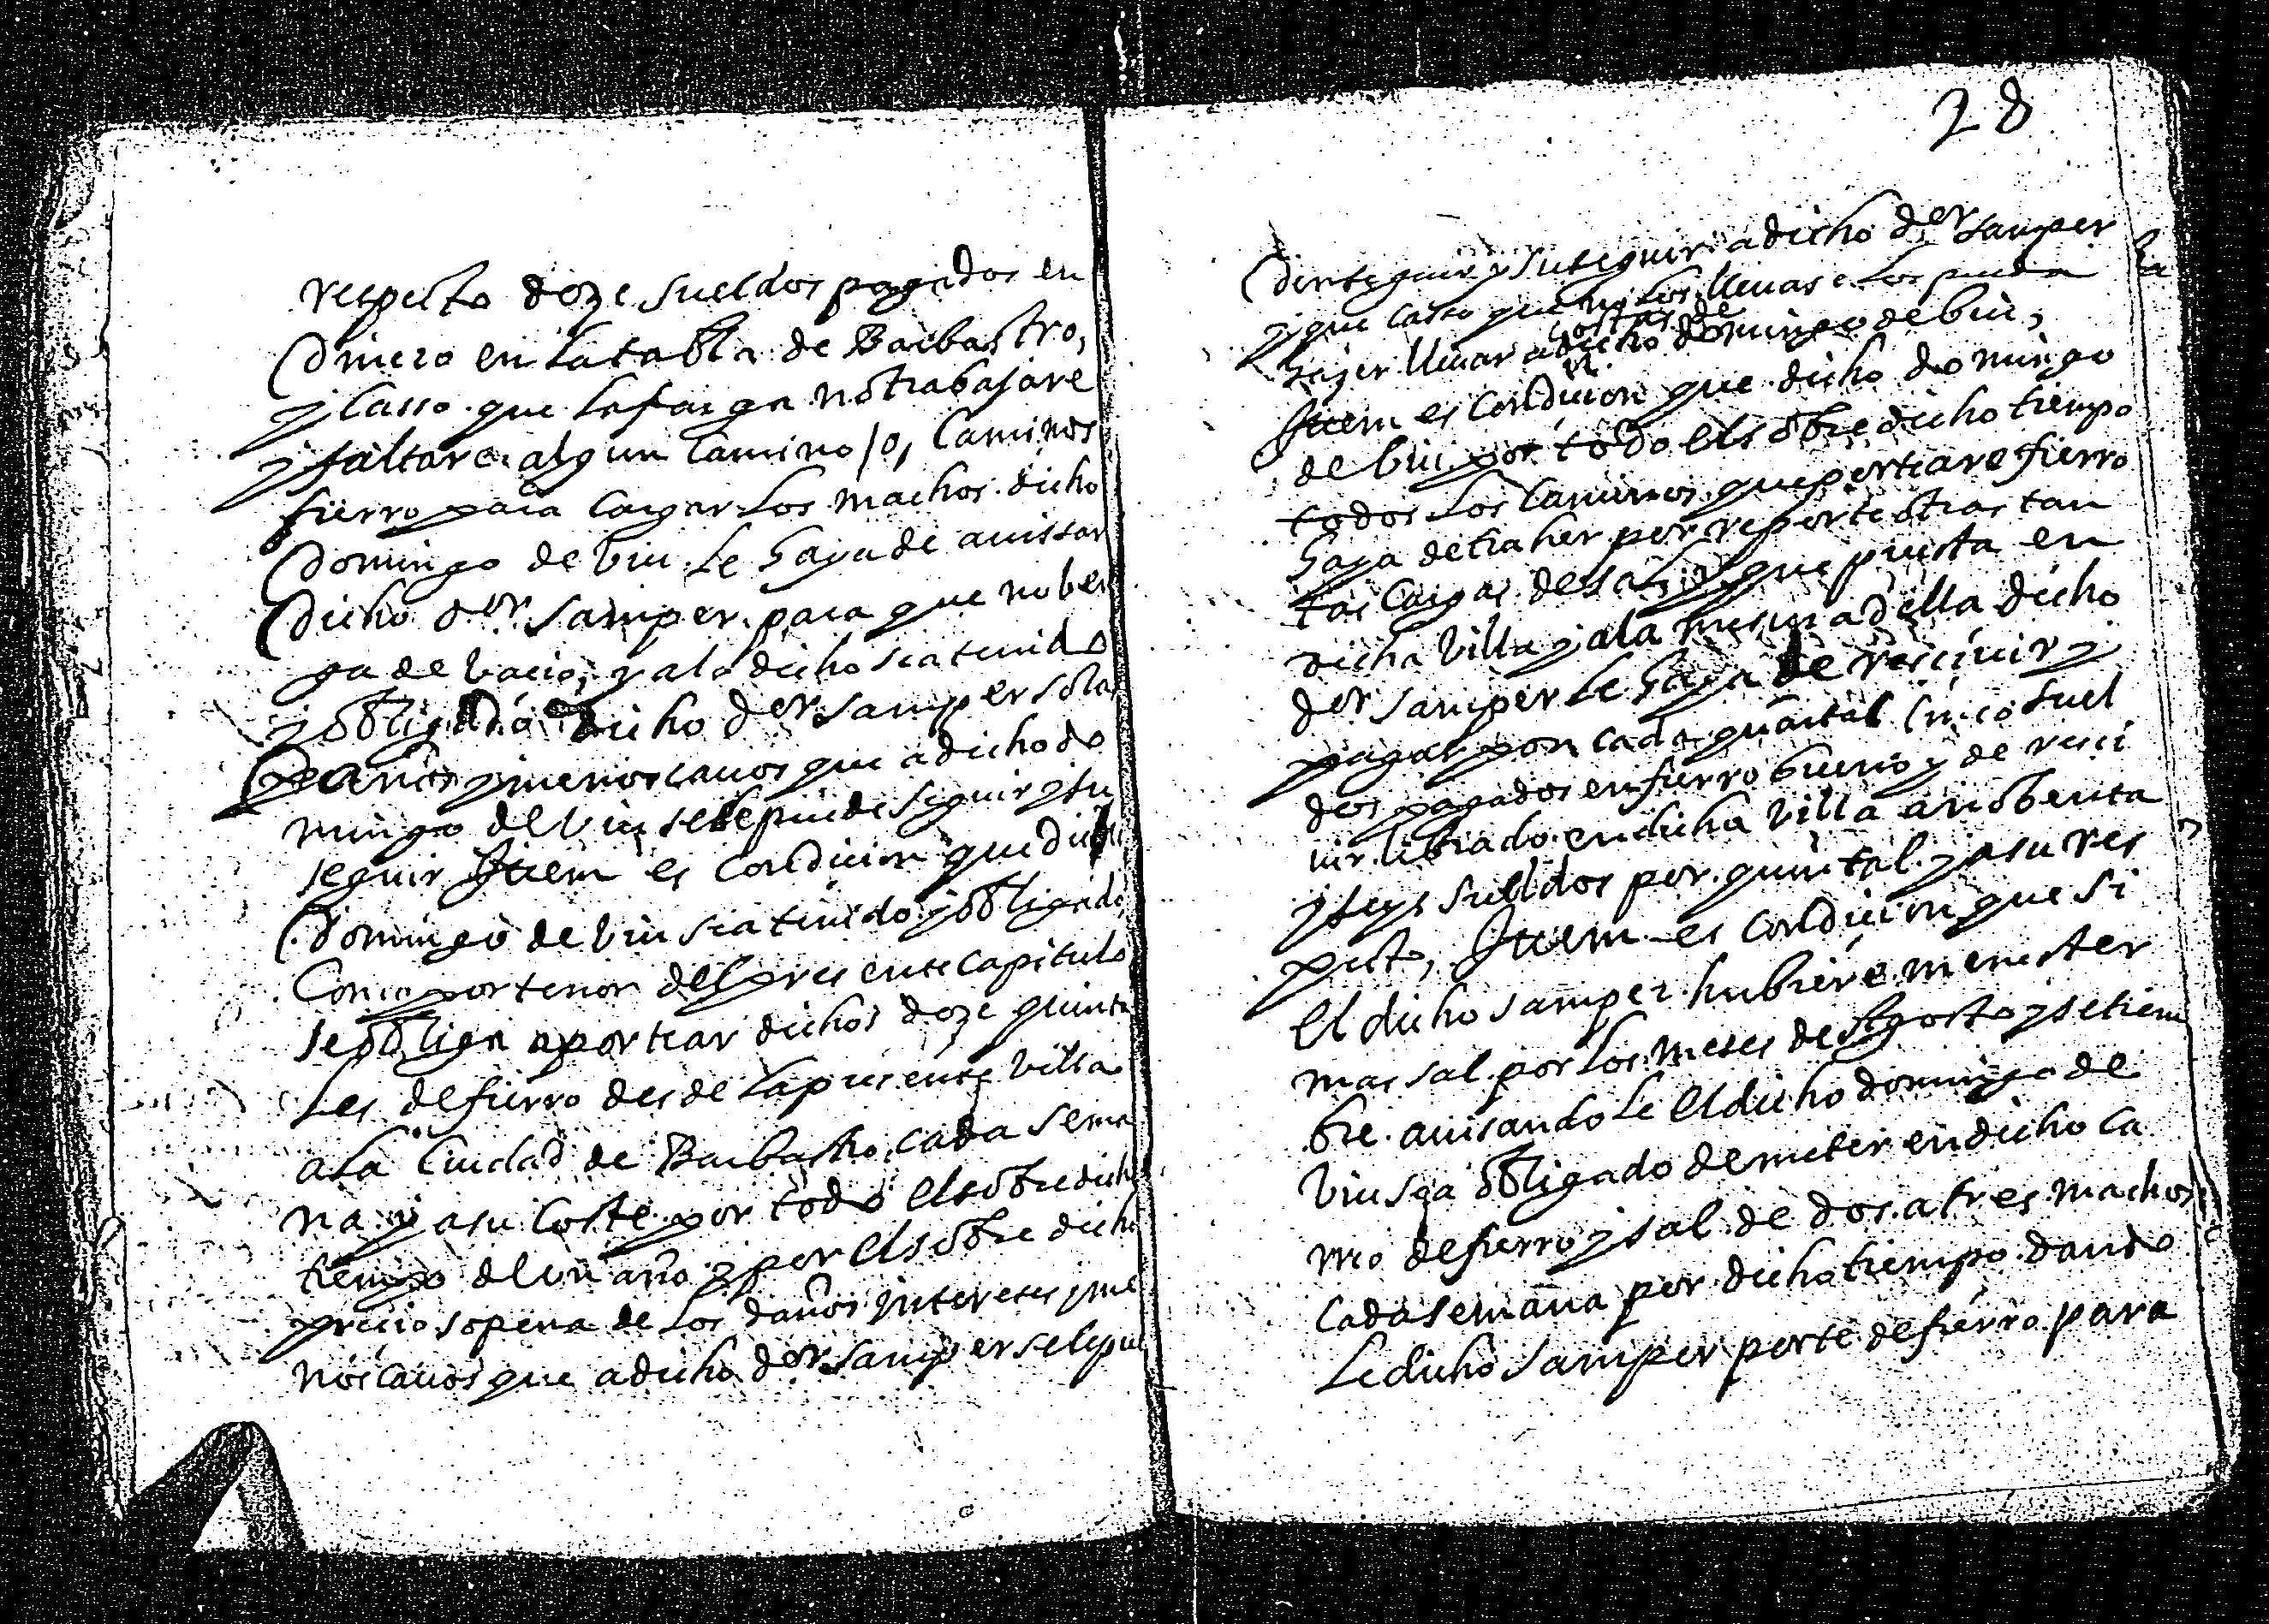 respecto doze sueldos pagados en
dinero en la tabla de Barbastro,
y casso que la farga no trabajare
y faltare algun camino /o, caminos
fierro para cargar los machos dicho
domingo de biu le haya de auissar
dicho der samper para que no ben
ga de bacio, y a lo dicho sea tenido
y obligado dicho der samper so las
penas y menoscauos que a dicho do
mingo de biu se le puede seguir y su
seguir Ittem es condicion que dicho
domingo de biu sea tenido y obligado
Como por tenor del presente capitulo
se obliga a portear dichos doze quinta
les de fierro desde la presente villa
a la Ciudad de Barbastro cada sema
na y a su coste por todo el sobredicho
tiempo de un año y por el sobre dicho
precio so pena de los daños intereses y me
noscauos que a dicho der samper se le pue
28
den seguir y suseguir a dicho der samper
y que casso que no los lleuase los pueda
hazer lleuar a costas de dicho domingo de biu,
Ittem es condicion que dicho domingo
de biu por todo el sobredicho tiempo
todos los caminos que porteare fierro
haya de traher por reporte otras tan
tas cargas de sal y que puesta en
dicha villa y a la mesma della dicho
der samper le haya de reciuir y
pagar por cada quintal cinco suel
dos pagados en fierro bueno y de reci
uir librado en dicha villa a nobenta
y seys sueldos por quintal y a su res
pecto, Ittem es condicion que si
el dicho samper hubiere menester
mas sal por los meses de Agosto y setiem
bre auisandole el dicho domingo de
biu sea obligado de meter en dicho ca
mio de fierro y sal de dos a tres machos
cada semana por dicho tiempo dando
le dicho samper porte de fierro para